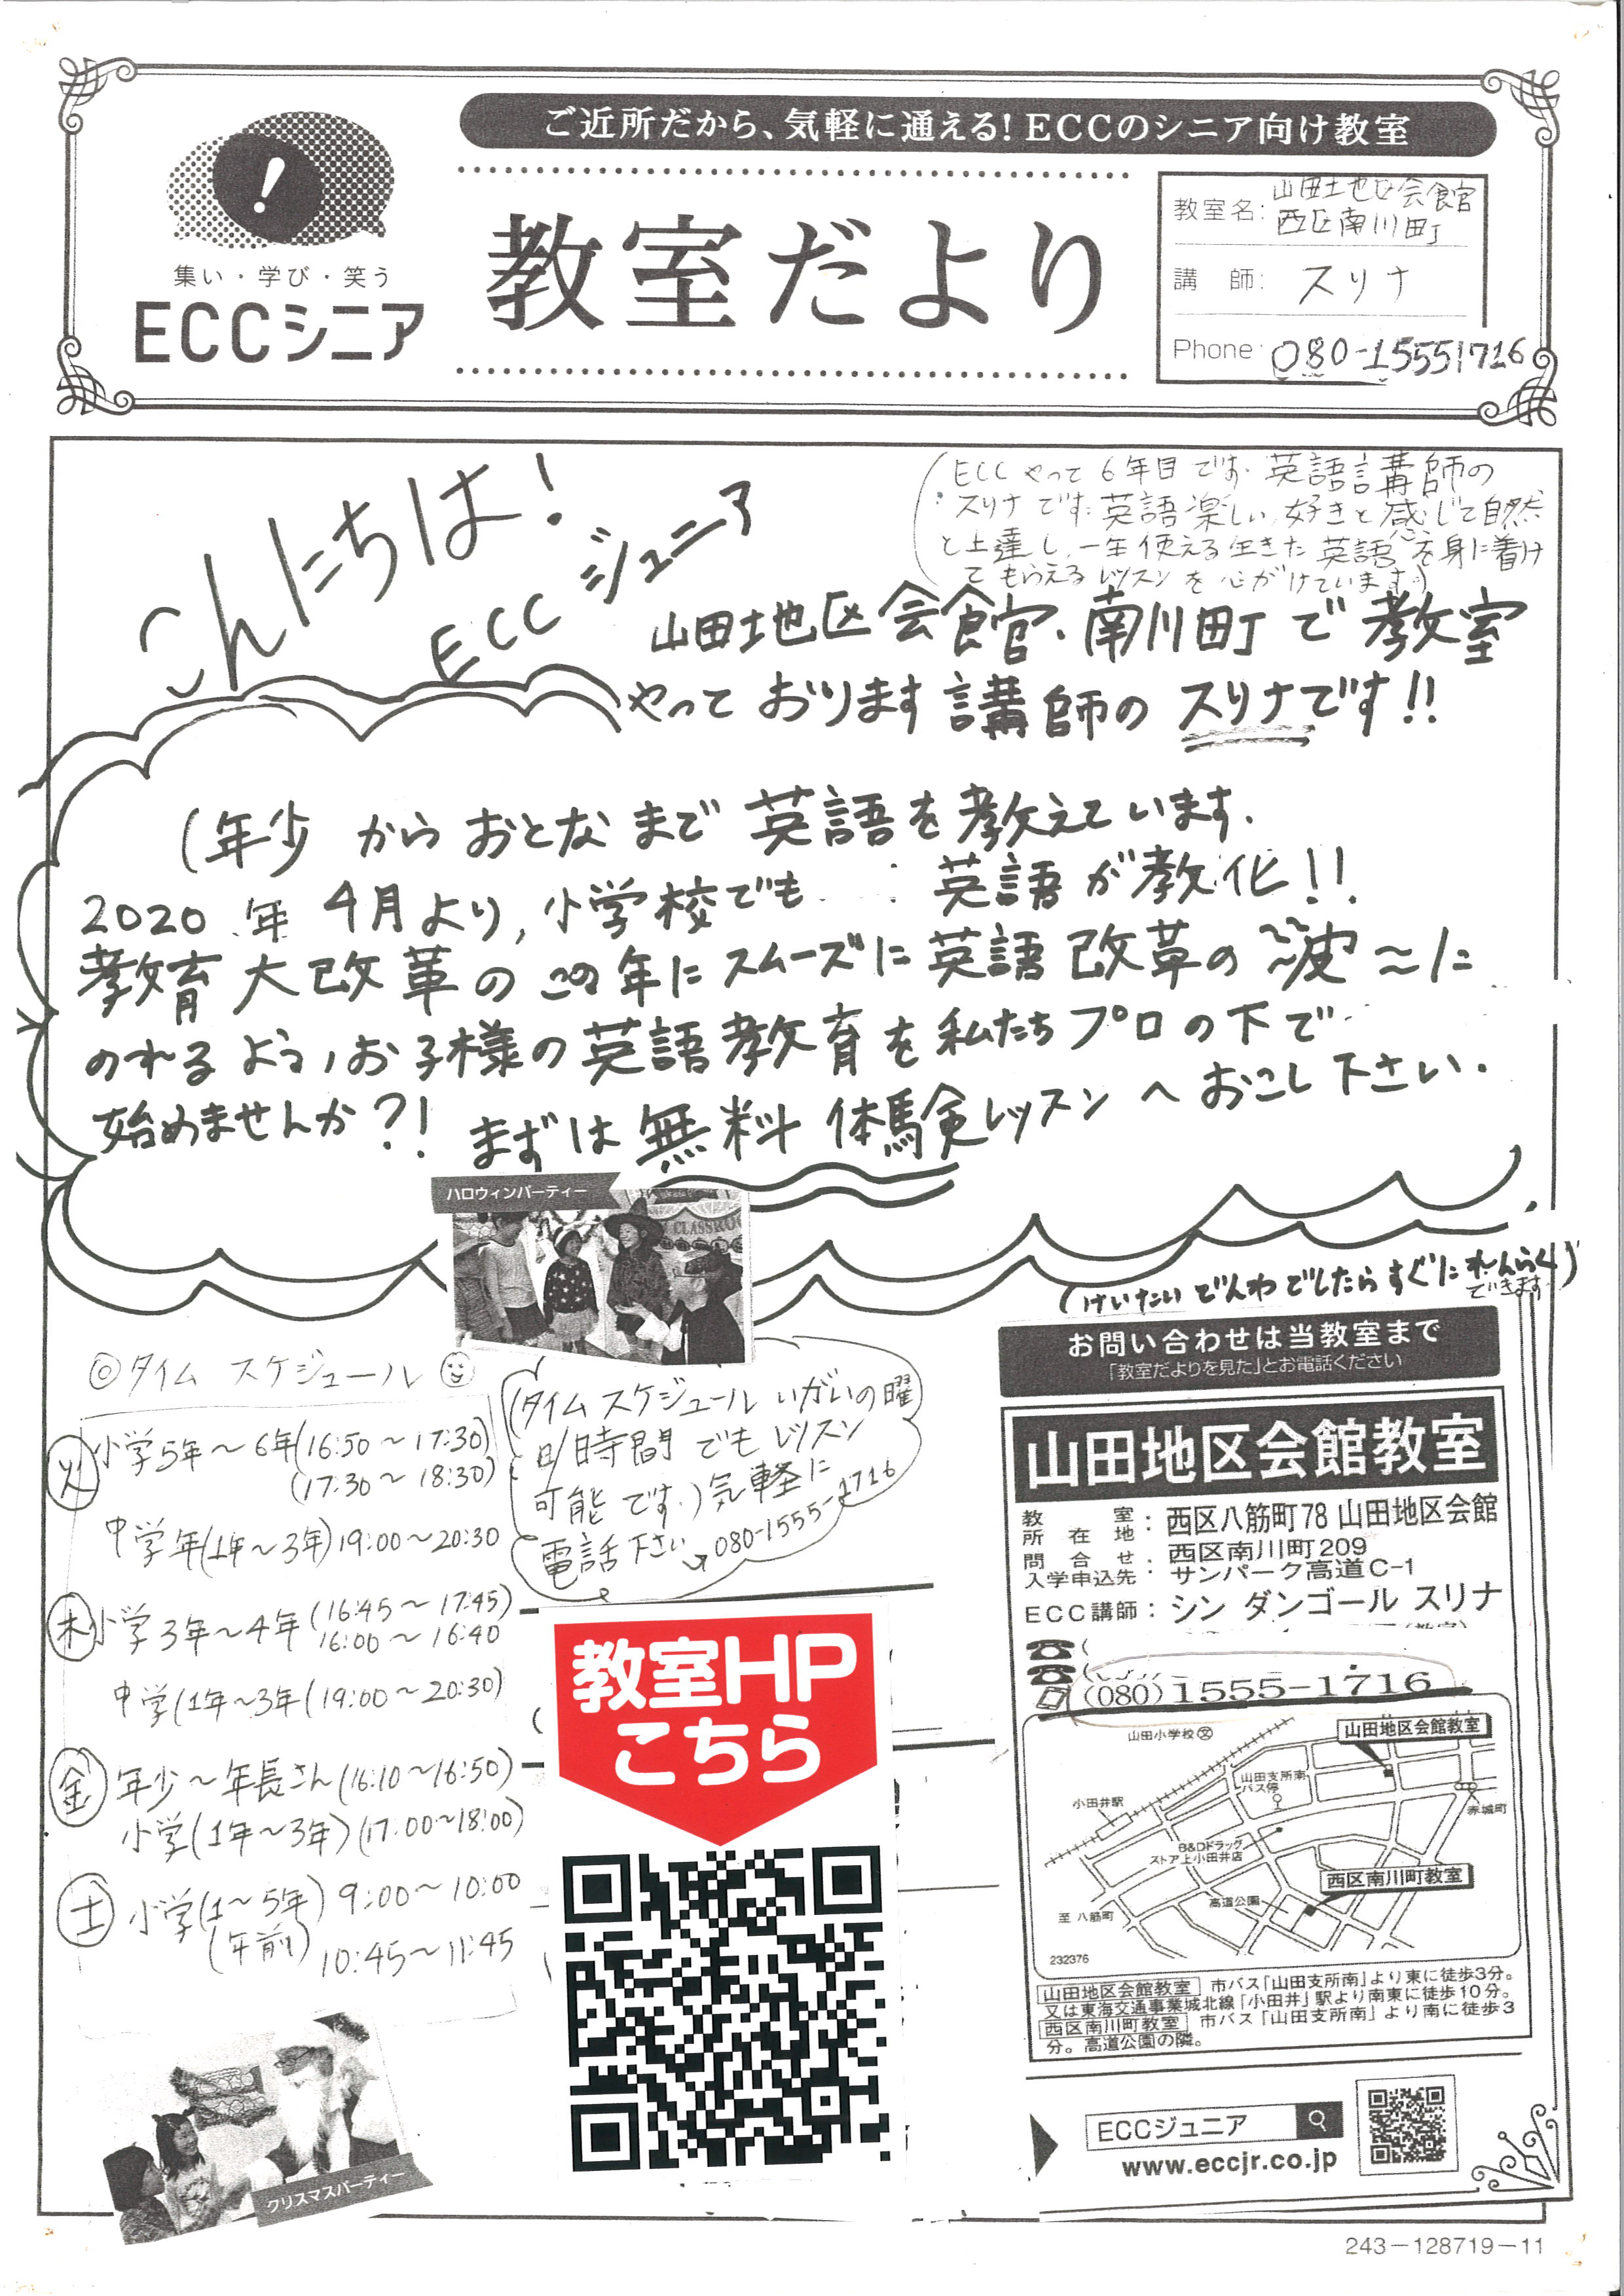 ご近所だから、気軽に通える!ECCのシニア向け教室
集い・学び・笑う
ECCシニア
教室だより
教室名: 山田地区会館
西区南川町
講師: スリナ
Phone: 080-15551716
こんにちは!
ECC ジュニア
(ECCやって6年目です。英語講師の
スリナです。英語楽しい、好きと感じて自然
と上達し、一生使える生きた英語を身に着け
てもらえるレッスンを心がけています。)
山田地区会館・南川町で教室
やっております講師のスリナです!!
(年少からおとなまで英語を教えています.
2020年4月より,小学校でも 英語が教化!!
教育大改革のこの年にスムーズに英語改革の~波~に
のれるように,お子様の英語教育を私たちプロの下で
始めませんか?! まずは無料体験レッスンへおこし下さい.
ハロウィンパーティー
(けいたいでんわでしたらすぐにれんらく)
できます
◎タイムスケジュール
火 小学5年～6年(16:50～17:30)
(17:30～18:30)
中学年(1年～3年)19:00～20:30
木 小学3年～4年(16:45～17:45)
16:00～16:40
中学(1年～3年(19:00～20:30)
金 年少～年長さん(16:10～16:50)
小学(1年～3年)(17:00～18:00)
土 小学(1～5年) 9:00～10:00
(午前) 10:45～11:45
(タイムスケジュールいがいの曜
日/時間でもレッスン
可能です。)気軽に
電話下さい 080-1555-1716
教室HP
こちら
クリスマスパーティー
お問い合わせは当教室まで
「教室だよりを見た」とお電話ください
山田地区会館教室
教室所在地:西区八筋町78 山田地区会館
問合せ・入学申込先:西区南川町209
サンパーク高道C-1
ECC講師:シン ダンゴール スリナ
(080)1555-1716
山田小学校
山田地区会館教室
山田支所南
バス停
小田井駅
赤城町
B&Dドラッグ
ストア上小田井店
西区南川町教室
高道公園
至 八筋町
232376
山田地区会館教室 市バス「山田支所南」より東に徒歩3分。
又は東海交通事業城北線「小田井」駅より南東に徒歩10分。
西区南川町教室 市バス「山田支所南」より南に徒歩3
分。高道公園の隣。
ECCジュニア
www.eccjr.co.jp
243-128719-11